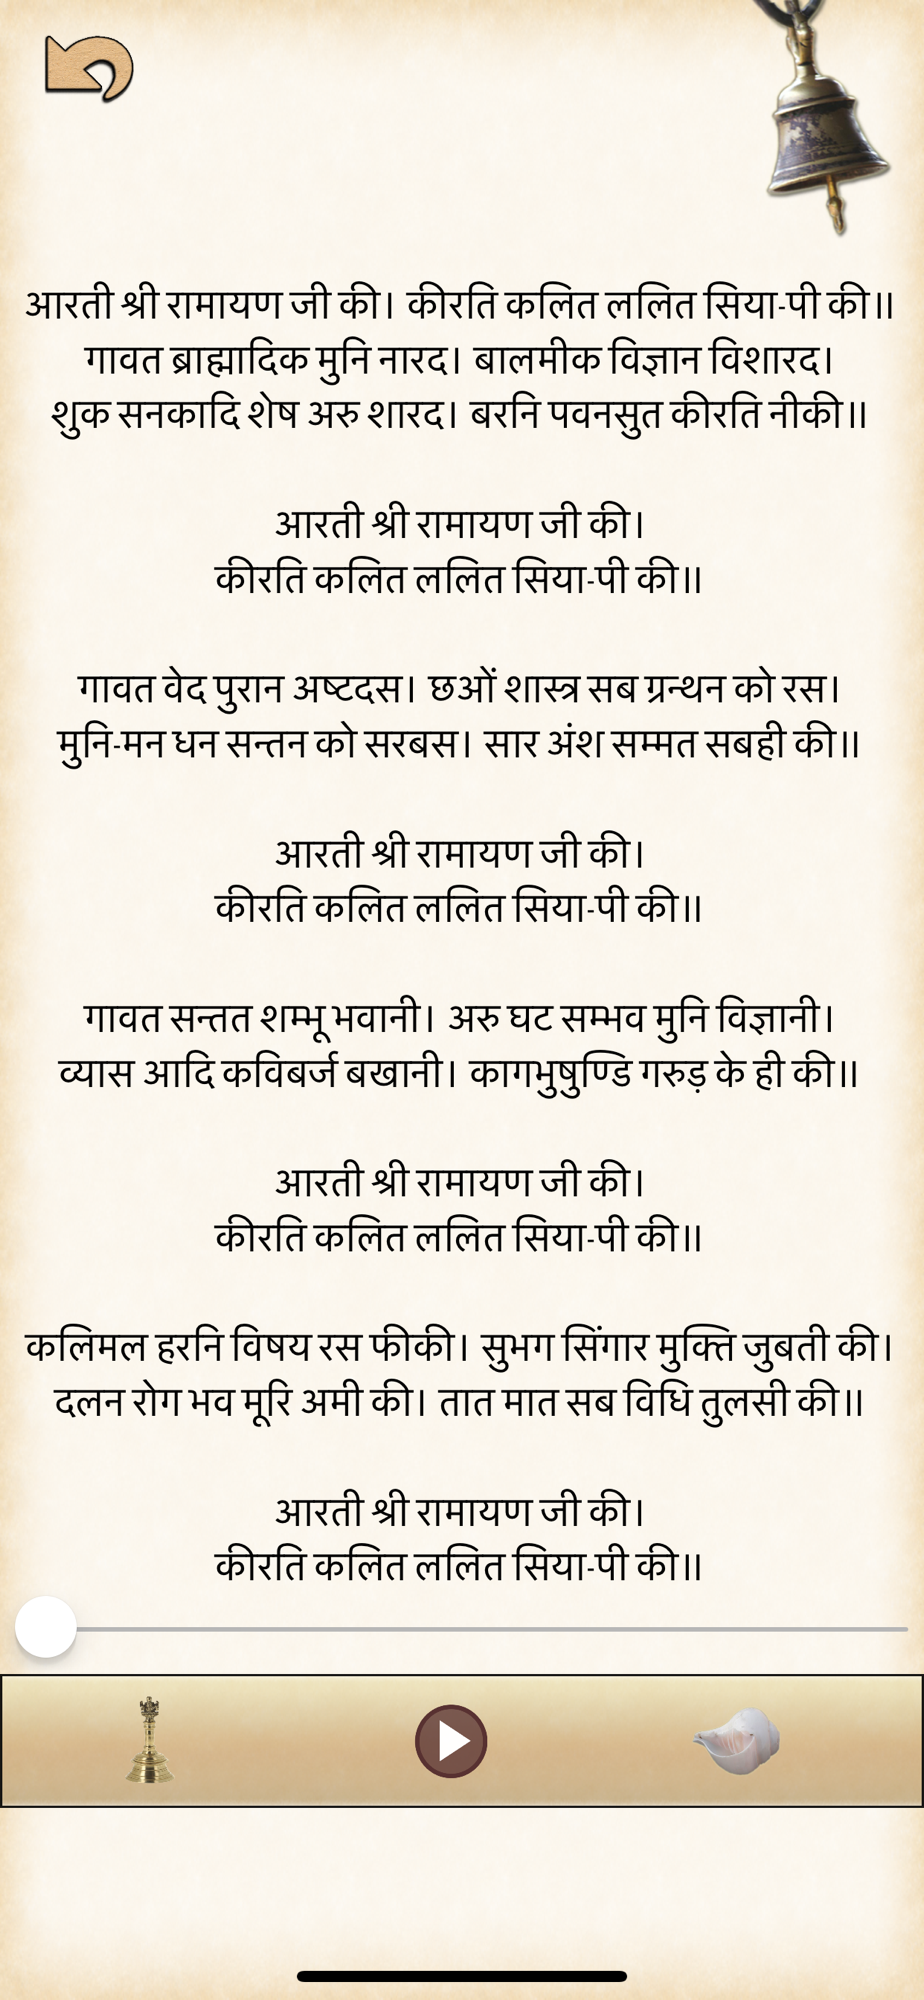 आरती श्री रामायण जी की। कीरति कलित ललित सिया-पी की॥
गावत ब्राह्मादिक मुनि नारद। बालमीक विज्ञान विशारद।
शुक सनकादि शेष अरु शारद। बरनि पवनसुत कीरति नीकी॥
आरती श्री रामायण जी की।
कीरति कलित ललित सिया-पी की॥
गावत वेद पुरान अष्टदस। छओं शास्त्र सब ग्रन्थन को रस।
मुनि-मन धन सन्तन को सरबस। सार अंश सम्मत सबही की॥
आरती श्री रामायण जी की।
कीरति कलित ललित सिया-पी की॥
गावत सन्तत शम्भू भवानी। अरु घट सम्भव मुनि विज्ञानी।
व्यास आदि कविबर्ज बखानी। कागभुषुण्डि गरुड़ के ही की॥
आरती श्री रामायण जी की।
कीरति कलित ललित सिया-पी की॥
कलिमल हरनि विषय रस फीकी। सुभग सिंगार मुक्ति जुबती की।
दलन रोग भव मूरि अमी की। तात मात सब विधि तुलसी की॥
आरती श्री रामायण जी की।
कीरति कलित ललित सिया-पी की॥